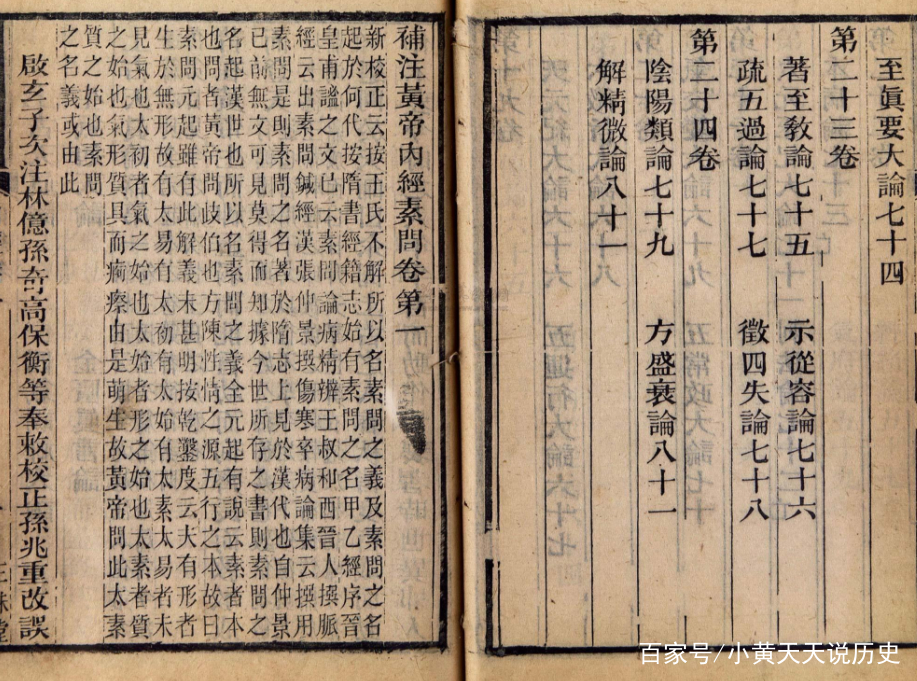 至眞要大論七十四
第二十三卷
著至敎論七十五 示從容論七十六
疏五過論七十七 徵四失論七十八
第二十四卷
陰陽類論七十九 方盛衰論八十一
解精微論八十一
補注黃帝內經素問卷第一
新校正云按王氏不解所以名素問之義及素問之名
起於何代按隋書經籍志始有素問之名甲乙經序晉
皇甫謐之文已云素問論病精辨王叔和西晉人撰脈
經云出素問鍼經漢張仲景撰傷寒卒病論集云撰用
素問是則素問之名著於隋志上見於漢代也自仲景
已前無文可見莫得而知據今世所存之書則素問之
名起漢世也所以名素問之義全元起有說云素者本
也問者黃帝問歧伯也方陳性情之源五行之本故曰
素問元起雖有此解義未甚明按乾鑿度云夫有形者
生於無形故有太易有太初有太始有太素太易者未
見氣也太初者氣之始也太始者形之始也太素者質
之始也氣形質具而痾瘵由是萌生故黃帝問此太素
質之始也素問
之名義或由此
啟玄子次注林億孫奇高保衡等奉敕校正孫兆重改誤
百家号/小黄天天说历史